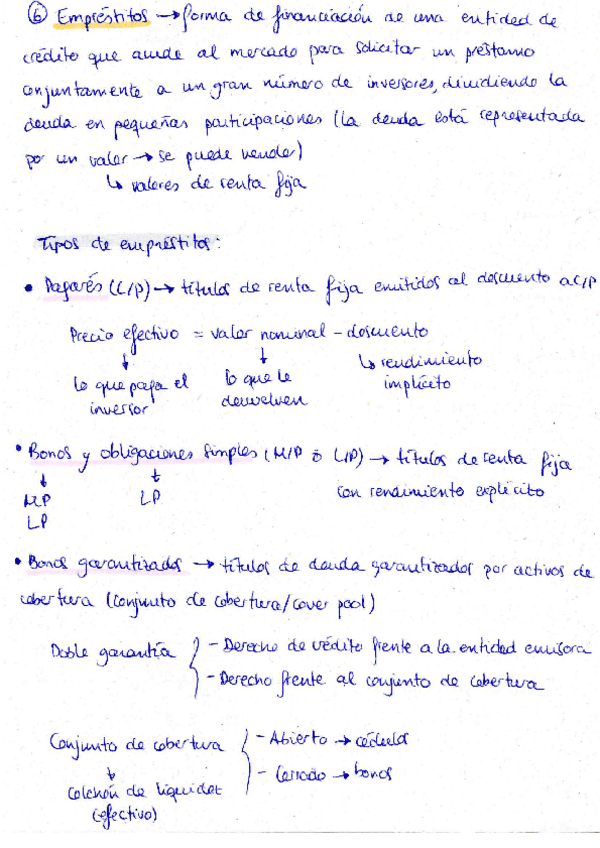 ⑥ Empréstitos → forma de financiación de una entidad de
crédito que acude al mercado para solicitar un préstamo
conjuntamente a un gran número de inversores, dividiendo la
deuda en pequeñas participaciones (la deuda está representada
por un valor → se puede vender)
↳ valores de renta fija
Tipos de empréstitos:
• Pagarés (C/P) → títulos de renta fija emitidos al descuento a C/P
Precio efectivo = valor nominal - descuento
↓ ↓ ↳ rendimiento
lo que paga el lo que le implícito
inversor devuelven
• Bonos y obligaciones simples (M/P o L/P) → títulos de renta fija
↓ ↓ con rendimiento explícito
MP LP
LP
• Bonos garantizados → títulos de deuda garantizados por activos de
cobertura (conjunto de cobertura/cover pool)
Doble garantía { - Derecho de crédito frente a la entidad emisora
- Derecho frente al conjunto de cobertura
Conjunto de cobertura { - Abierto → cédulas
↓ - Cerrado → bonos
Colchón de liquidez
(efectivo)